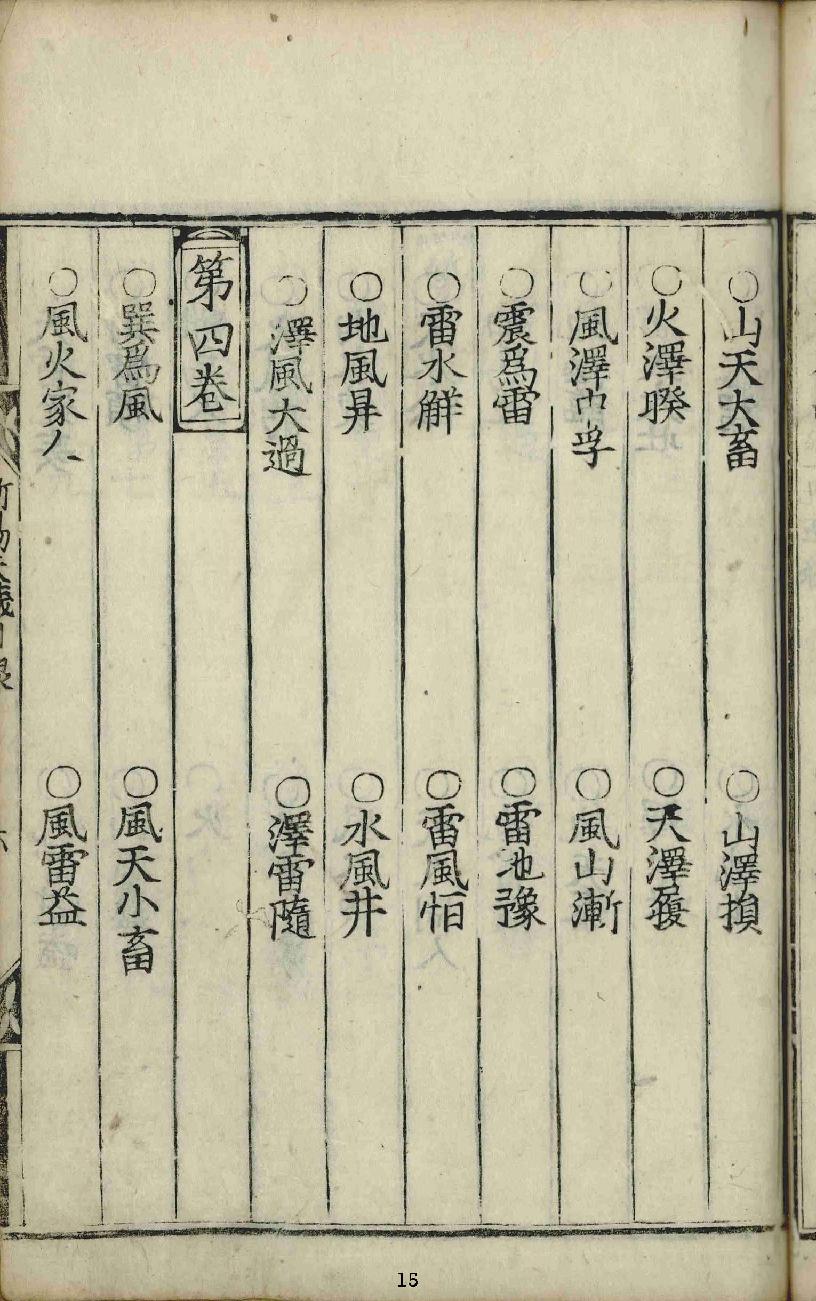 ○山天大畜　○山澤損
○火澤睽　○天澤履
○風澤中孚　○風山漸
○震爲雷　○雷地豫
○雷水解　○雷風恒
○地風昇　○水風井
○澤風大過　○澤雷隨
第四卷
○巽爲風　○風天小畜
○風火家人　○風雷益
15